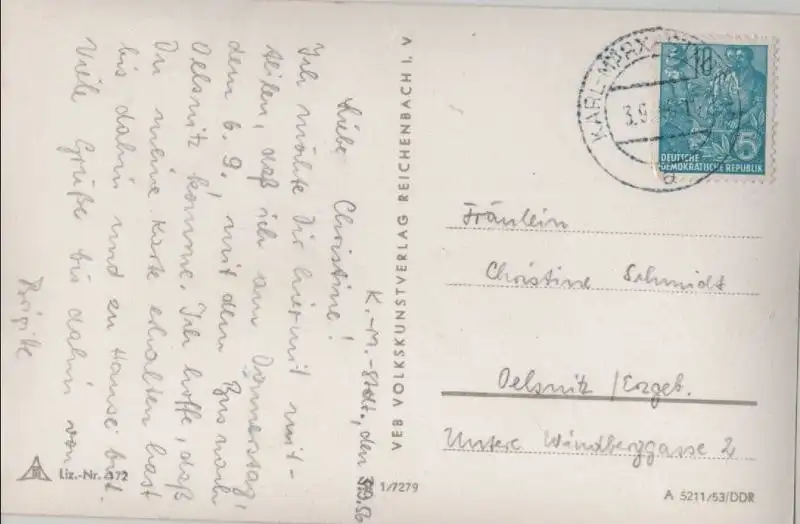 K.-M.-Stadt, den 3.9.56
Liebe Christine!
Ich möchte Dir hiermit mit-
teilen, daß ich am Donnerstag,
dem 6.9. mit dem Bus nach
Oelsnitz komme. Ich hoffe, daß
Du meine Karte erhalten hast
bis dahin und zu Hause bist.
Viele Grüße bis dahin von
Brigitte
Liz.-Nr. 472
VEB VOLKSKUNSTVERLAG REICHENBACH I. V
1/7279
KARL-MARX-
3.9.
a
10
5
DEUTSCHE
DEMOKRATISCHE REPUBLIK
Fräulein
Christine Schmidt
Oelsnitz /Erzgeb.
Untere Windberggasse 2
A 5211/53/DDR